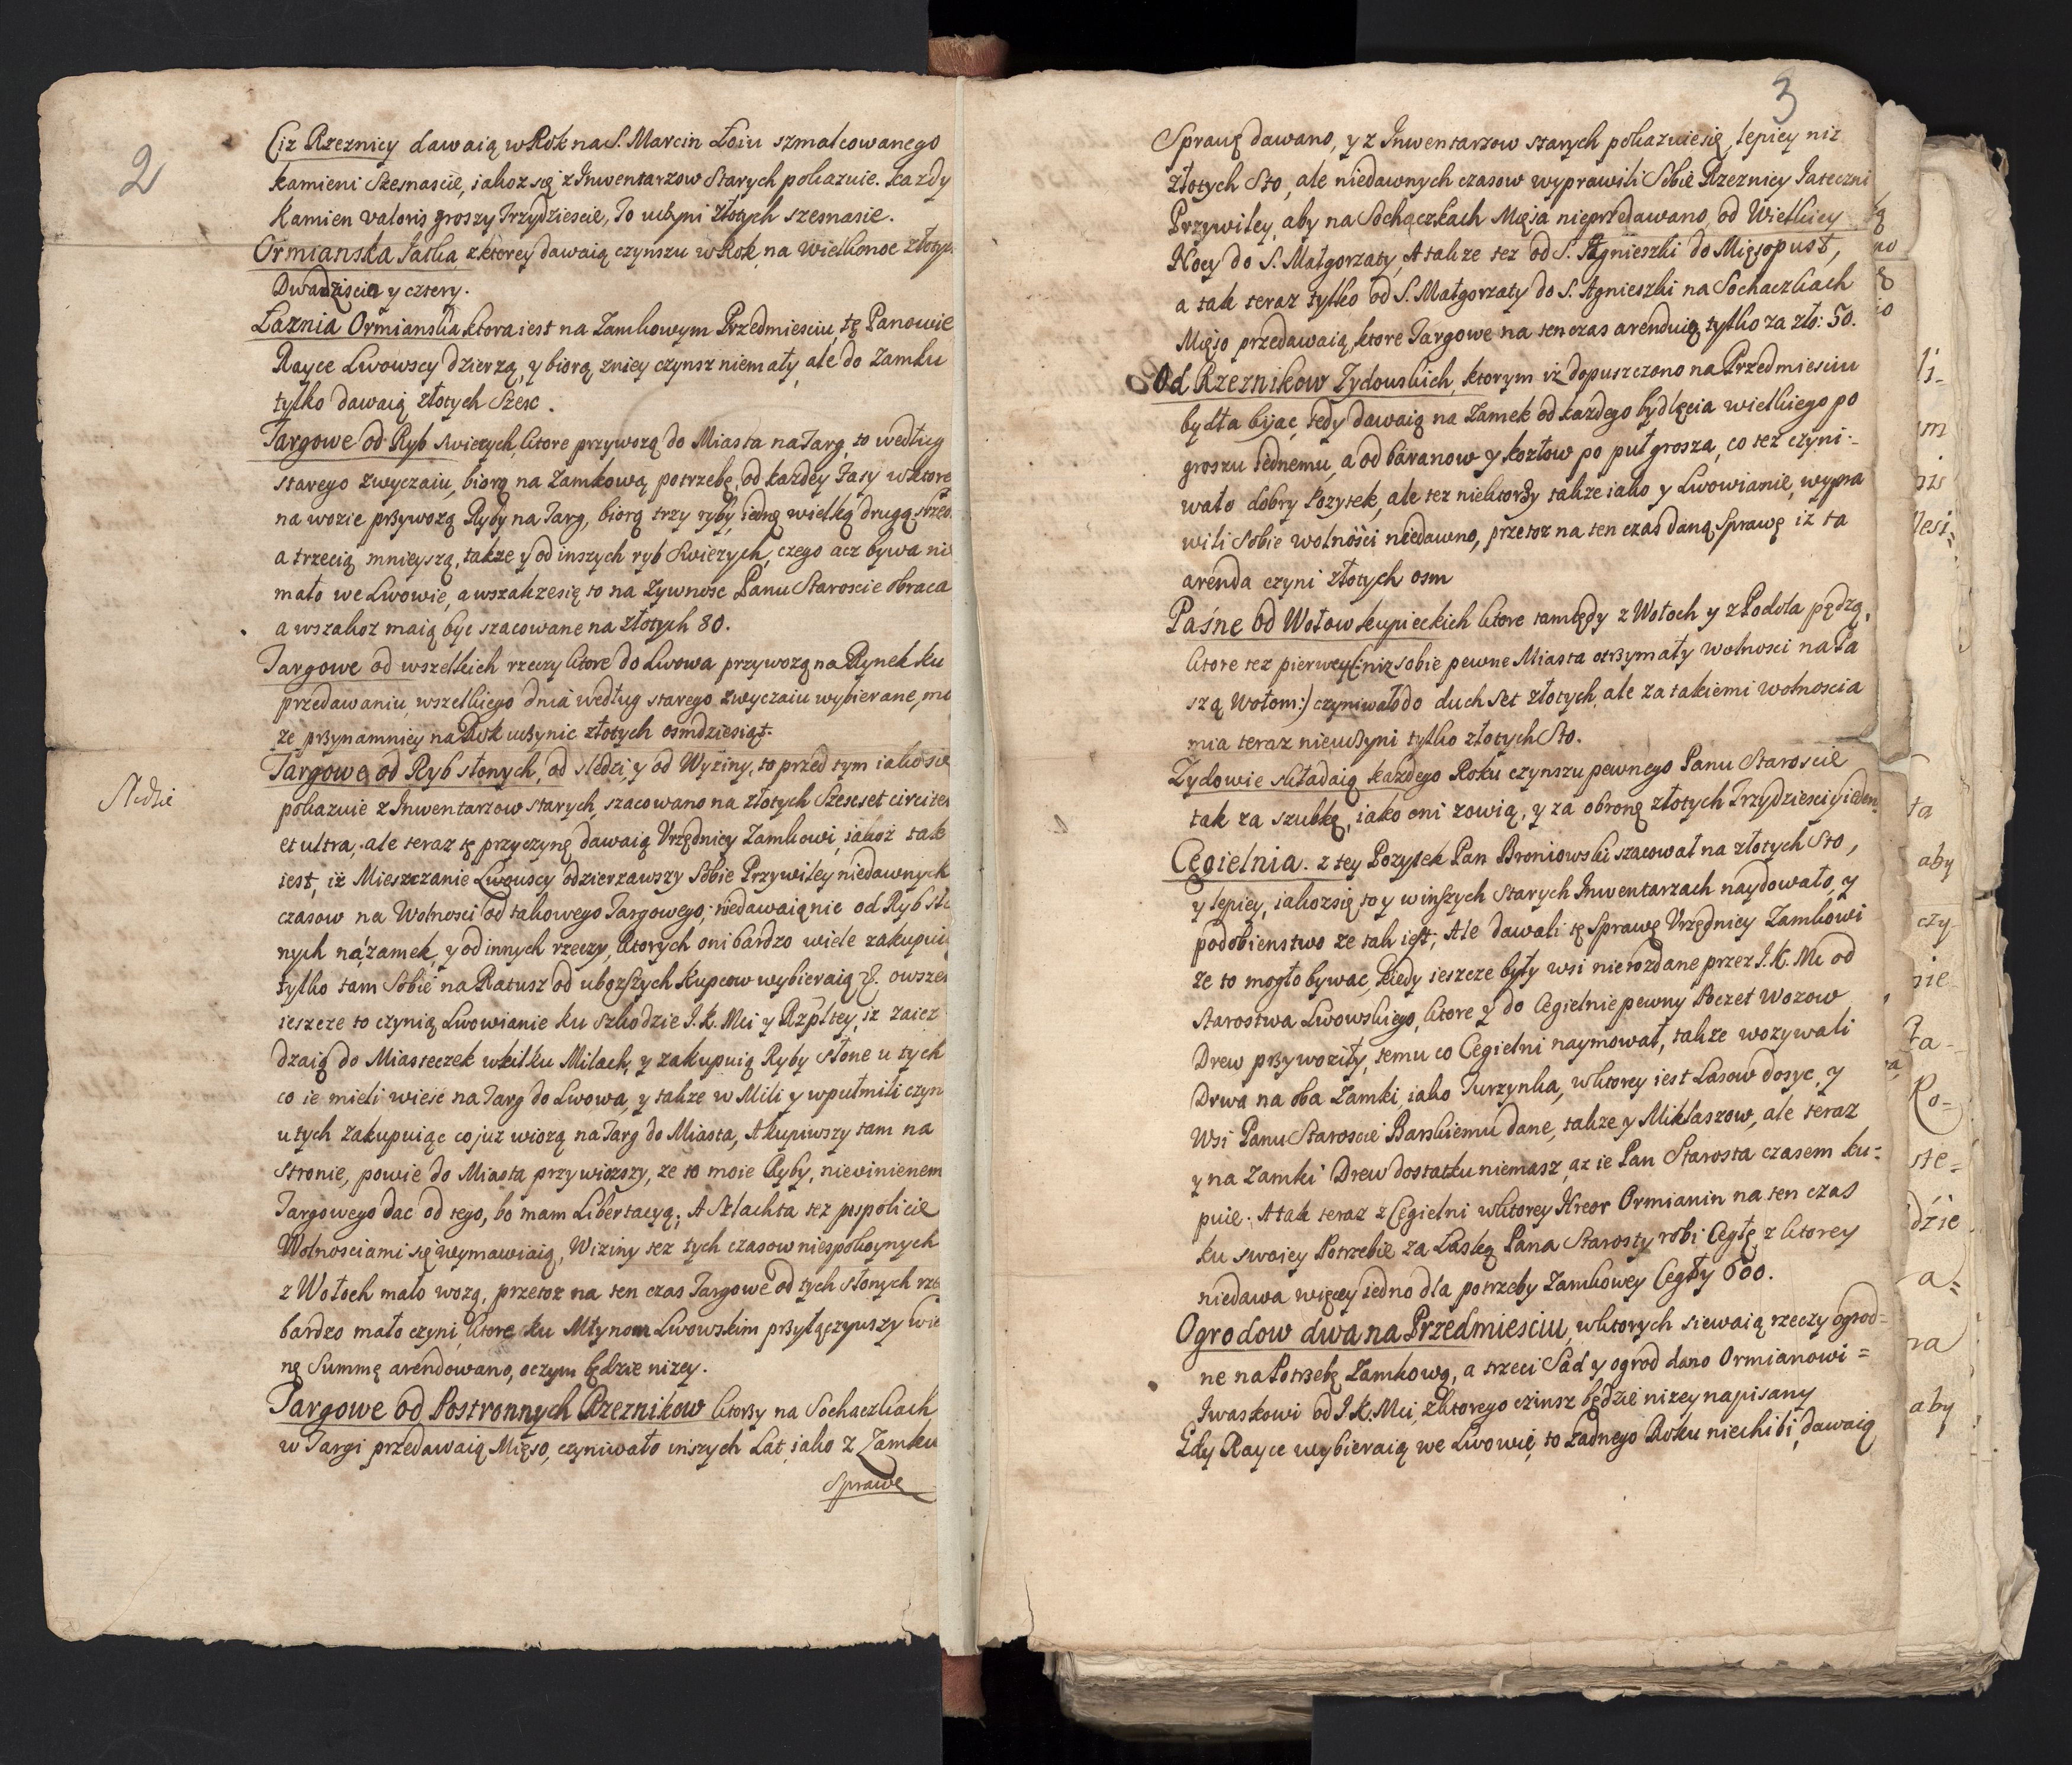 2
Ciż Rzeznicy dawaią w Rok na S. Marcin Łoiu szmalcowanego
kamieni Szesnascie, iakoz się z Inwentarzow Starych pokazuie. każdy
Kamien valoris groszy Trzydziescie, To uczyni złotych szesnascie.
Ormianska Jatka, z ktorey dawaią czynszu w Rok, na Wielkonoc złotych
Dwadziescia y cztery.
Łaznia Ormianska ktora iest na Zamkowym Przedmiesciu, tę Panowie
Rayce Lwowscy dzierzą, y biorą zniey czynsz niemały, ale do Zamku
tylko dawaią złotych Szesc.
Targowe od Ryb swiezych, ktore przywozą do Miasta na Targ, to według
starego zwyczaiu, biorą na Zamkową potrzebę, od kazdey Fasy w ktore
na wozie przywozą Ryby na Targ, biorą trzy ryby, iedną wielką drugą srzed
a trzecią mnieyszą, takze y od inszych ryb Swiezych, czego acz bywa nie
mało we Lwowie, a wszakze się to na Zywnosc Panu Staroscie obraca
a wszakoz maią byc szacowane na złotych 80.
Targowe od wszelkich rzeczy ktore do Lwowa przywozą na Rynek ku
przedawaniu, wszelkiego dnia według starego zwyczaiu wybierane, mo
ze przynamniey na Rok uczynic złotych osmdziesiąt.
Targowe od Ryb słonych, od sledzi, y od Wyziny, to przed tym iako sie
Sledzie
pokazuie z Inwentarzow starych, szacowano na złotych Szescset circiter
et ultra, ale teraz tę przyczynę dawaią Vrzędnicy Zamkowi, iakoż tak
iest, iż Mieszczanie Lwowscy odzierzawszy Sobie Przywiley niedawnych
czasow na Wolnosci od takowego Targowego, niedawaią nic od Ryb sło
nych na zamek, y od innych rzeczy, ktorych oni bardzo wiele zakupuią
tylko tam Sobie na Ratusz od ubozszych Kupcow wybieraią &. owszem
ieszcze to czynią Lwowianie ku szkodzie J. K. Mci y Rzpltey, iz zaiez
dzaią do Miasteczek w kilku Milach, y zakupuią Ryby Słone u tych
co ie mieli wiesc na Targ do Lwowa, y takze w Mili y w pułmili czyn
u tych zakupuiąc co juz wiozą na Targ do Miasta, A kupiwszy tam na
stronie, powie do Miasta przywiozszy, ze to moie Ryby, niewinienem
Targowego dac od tego, bo mam Libertacyą; A Szlachta tez pospolicie
Wolnosciami się wymawiaią, Wiziny tez tych czasow niespokoynych
z Wołoch mało wozą, przetoz na ten czas Targowe od tych słonych rze
bardzo mało czyni, ktore ku Młynom Lwowskim przyłączywszy w ie
nę Summę arendowano, o czym będzie nizey.
Targowe od Postronnych Rzeznikow ktorzy na Sochaczkach
w Targi przedawaią Mięso, czyniwało inszych Lat, iako z Zamku
Sprawę
3
Sprawę dawano, y z Inwentarzow starych pokazuie się, lepiey niz
złotych Sto, ale niedawnych czasow wyprawili Sobie Rzeznicy Jateczni
Przywiley, aby na Sochaczkach Mięsa nieprzedawano, od Wielkiey
Nocy do S. Małgorzaty, A takze tez od S. Agnieszki do Mięsopust,
a tak teraz tylko od S. Małgorzaty do S. Agnieszki na Sochaczkach
Mięso przedawaią, ktore Targowe na ten czas arenduią tylko za zło: 50.
Od Rzeznikow Zydowskich, ktorym iż dopuszczono na Przedmiesciu
bydła bijac, tedy dawaią na Zamek od kazdego bydlęcia wielkiego po
groszu iednemu, a od baranow y kozłow po puł grosza, co tez czyni-
wało dobry Pozytek, ale tez niektorzy takze iako y Lwowianie, wypra
wili sobie wolnosci niedawno, przetoz na ten czas daną Sprawę iz ta
arenda czyni złotych osm
Paśne od Wołow kupieckich ktore tamtędy z Wołoch y z Podola pędzą,
ktore tez pierwey (: niz sobie pewne Miasta otrzymały wolnosci na Pa
szą Wołom:) czyniwało do dwuch set złotych, ale za takiemi wolnoscia
mia teraz nieuczyni tylko złotych Sto.
Zydowie składaią kazdego Roku czynszu pewnego Panu Staroscie
tak za szubkę, iako oni zowią, y za obronę złotych Trzydziesci y ieden.
Cegielnia. z tey Pozytek Pan Broniowski szacował na złotych Sto,
y lepiey, iakoz się to y w inszych Starych Inwentarzach naydowało, y
podobienstwo ze tak iest, Ale dawali tę Sprawę Vrzędnicy Zamkowi
ze to mogło bywac, kiedy ieszcze były wsi nierozdane przez J. K. Mc od
Starostwa Lwowskiego, ktore y do Cegielnie pewny Poczet Wozow
Drew przywoziły, temu co Cegielni naymował, takze wozywali
Drwa na oba Zamki, iako Turzynka, w ktorey iest Lasow dosyc, y
Wsi Panu Staroscie Barskiemu dane, takze y Miklaszow, ale teraz
y na Zamki Drew dostatku niemasz, az ie Pan Starosta czasem ku=
puie. A tak teraz z Cegielni w ktorey Kreor Ormianin na ten czas
ku swoiey Potrzebie za Łaską Pana Starosty robi Cegłę, z ktorey
niedawa więcey iedno dla potrzeby Zamkowey Cegły 600.
Ogrodow dwa na Przedmiesciu, w ktorych siewaią rzeczy ogrod=
ne na Potrzebę Zamkową, a trzeci Sad y ogrod dano Ormianowi=
Iwaskowi od J. K. Mci, z ktorego czinsz będzie nizey napisany
Gdy Rayce wybieraią we Lwowie, to zadnego Roku niechibi, dawaią